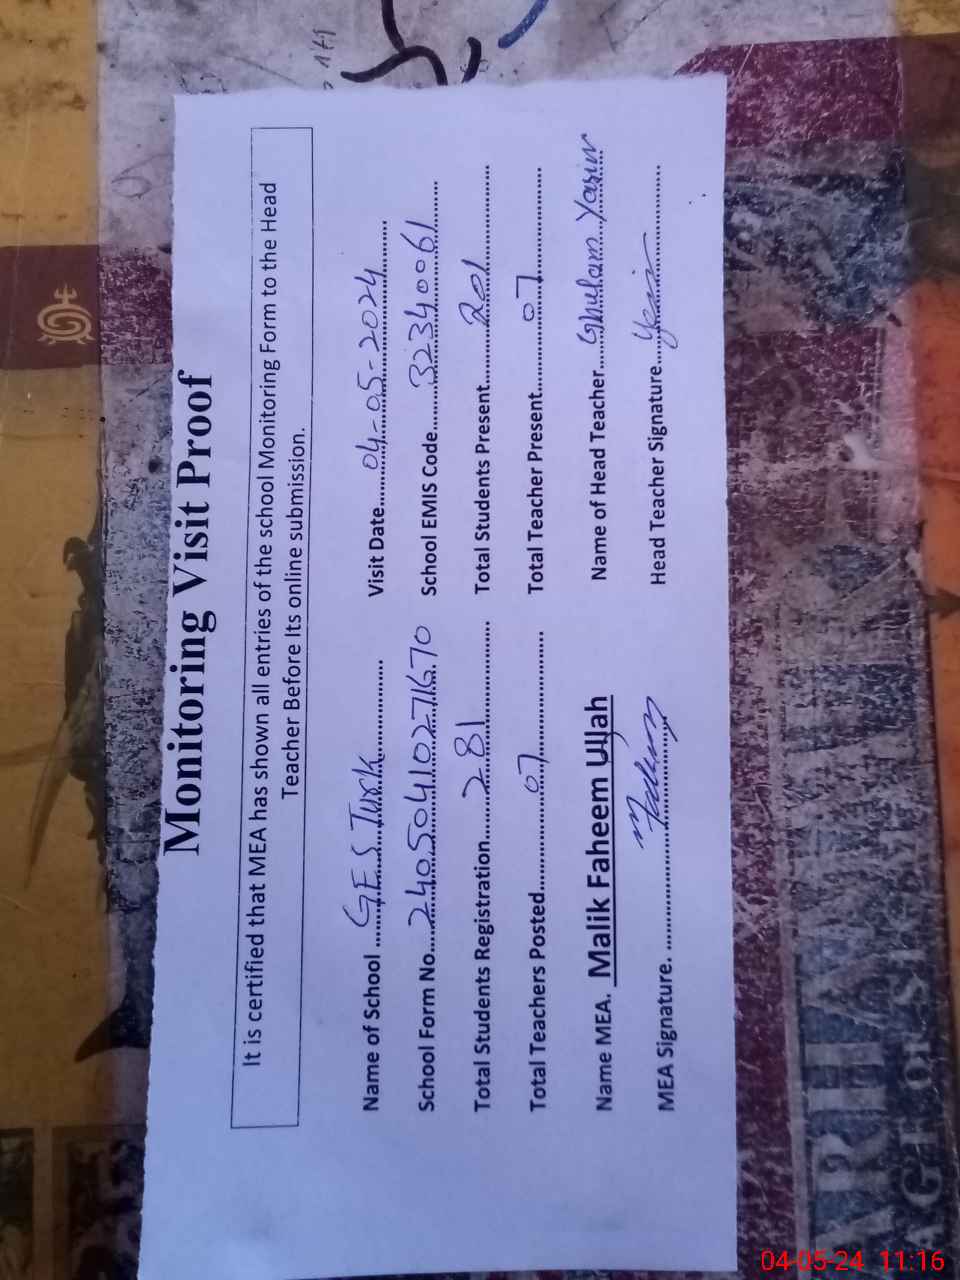 Monitoring Visit Proof
It is certified that MEA has shown all entries of the school Monitoring Form to the Head
Teacher Before Its online submission.
Name of School G.E.S Turk Visit Date 04-05-2024
School Form No. 24050410271670 School EMIS Code 32340061
Total Students Registration 281 Total Students Present 201
Total Teachers Posted 07 Total Teacher Present 07
Name MEA. Malik Faheem Ullah Name of Head Teacher Ghulam Yasin
MEA Signature. Head Teacher Signature Yasin
AGE OF
04-05-24 11:16